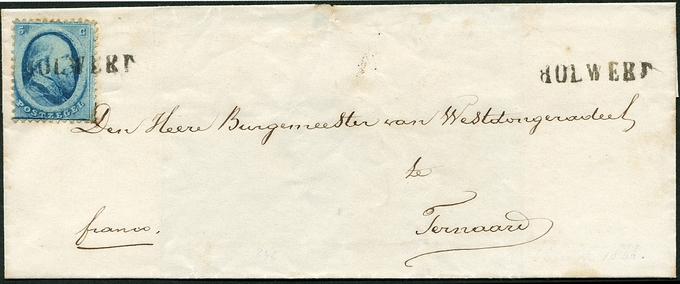 5 C
HOLWERD
POSTZEGEL
HOLWERD
Den Heere Burgemeester van Westdongeradeel
te
franco.
Ternaard